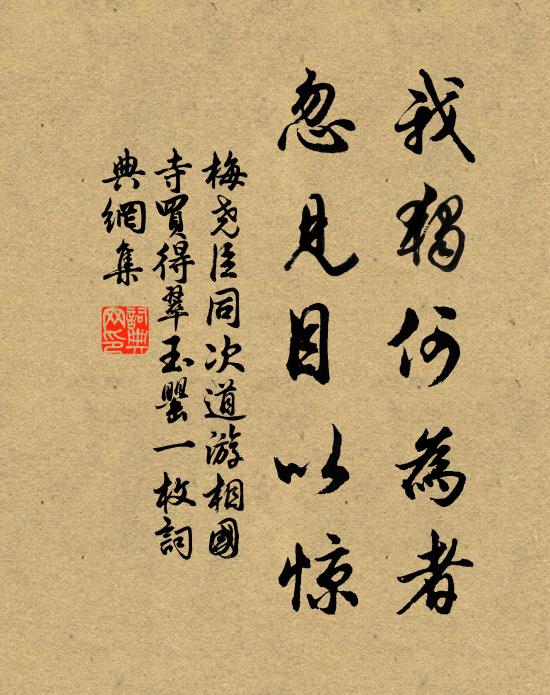 我獨何為者
忽見目以惊
梅尧臣同次道游相國
寺買得翠玉罌一枚詞
典網集
詞典
网印